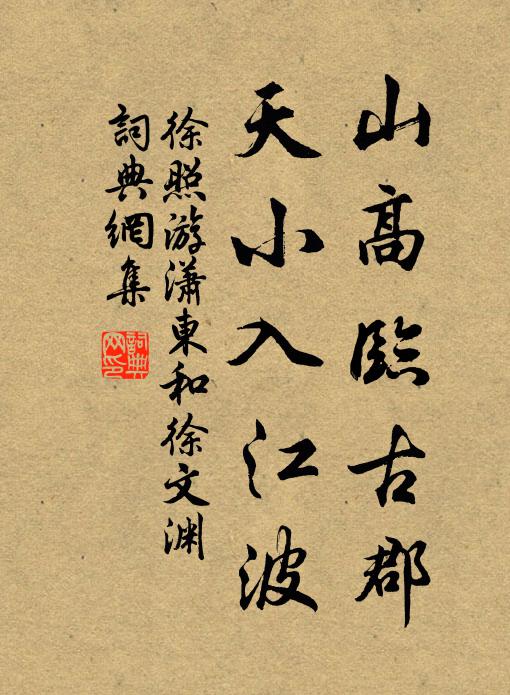 山高臨古郡
天小入江波
徐照游瀟東和徐文渊
詞典網集
詞典网印